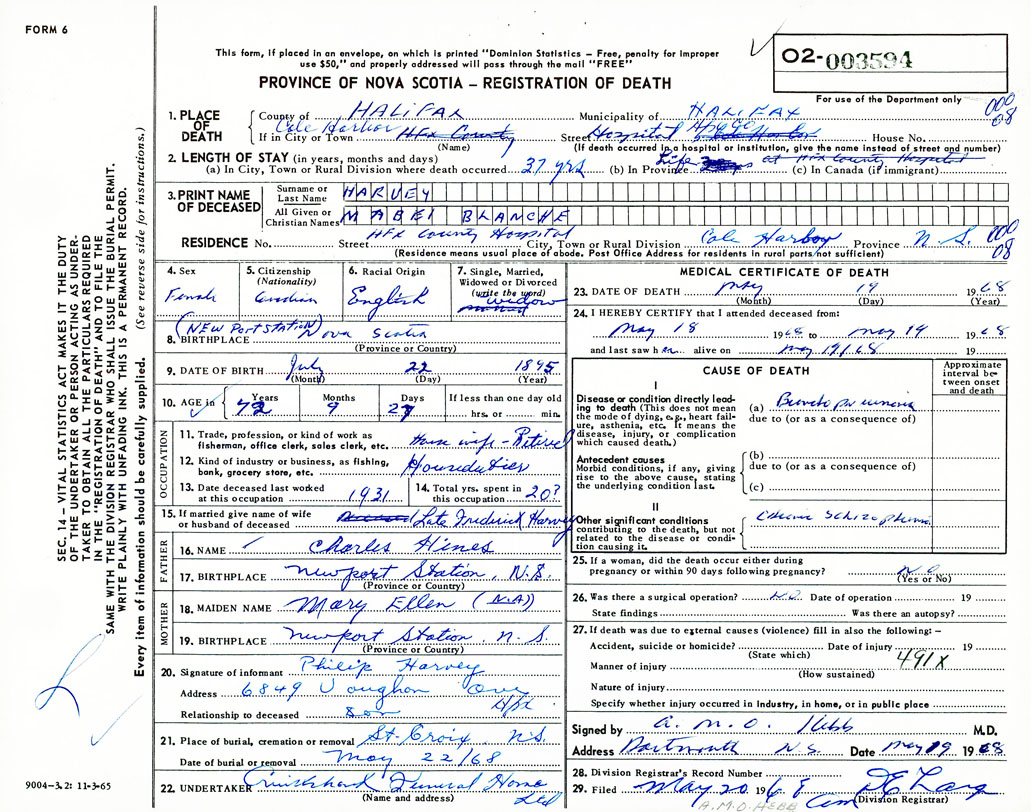 FORM 6
This form, if placed in an envelope, on which is printed "Dominion Statistics – Free, penalty for improper
use $50," and properly addressed will pass through the mail "FREE"
PROVINCE OF NOVA SCOTIA – REGISTRATION OF DEATH
O2-003594
For use of the Department only
000
08
SEC. 14 – VITAL STATISTICS ACT MAKES IT THE DUTY
OF THE UNDERTAKER OR PERSON ACTING AS UNDER-
TAKER TO OBTAIN ALL THE PARTICULARS REQUIRED
IN THE "REGISTRATION OF DEATH" AND TO FILE THE
SAME WITH THE DIVISION REGISTRAR WHO SHALL ISSUE THE BURIAL PERMIT.
WRITE PLAINLY WITH UNFADING INK. THIS IS A PERMANENT RECORD.
Every item of information should be carefully supplied. (See reverse side for instructions.)
1. PLACE OF DEATH County of HALIFAX Municipality of HALIFAX
If in City or Town Cole Harbor HFx County Street Hospital House No.
(Name) (If death occurred in a hospital or institution, give the name instead of street and number)
2. LENGTH OF STAY (in years, months and days) at Hfx County Hospital
(a) In City, Town or Rural Division where death occurred 37 yrs (b) In Province Life (c) In Canada (if immigrant)
3. PRINT NAME OF DECEASED Surname or Last Name HARVEY
All Given or Christian Names MABEl BLANCHE
RESIDENCE No. Street HFx County Hospital City, Town or Rural Division Cole Harbor Province N S. 000 08
(Residence means usual place of abode. Post Office Address for residents in rural parts not sufficient)
4. Sex Female
5. Citizenship (Nationality) Canadian
6. Racial Origin English
7. Single, Married, Widowed or Divorced (write the word) widow
8. BIRTHPLACE (NEW Port STATION) Nova Scotia
(Province or Country)
9. DATE OF BIRTH July 22 1895
(Month) (Day) (Year)
10. AGE in Years 72 Months 9 Days 27 If less than one day old hrs. or min.
OCCUPATION
11. Trade, profession, or kind of work as fisherman, office clerk, sales clerk, etc. House wife - Retired
12. Kind of industry or business, as fishing, bank, grocery store, etc. Houseduties
13. Date deceased last worked at this occupation 1931
14. Total yrs. spent in this occupation 20?
15. If married give name of wife or husband of deceased Late Frederick Harvey
FATHER
16. NAME Charles Hines
17. BIRTHPLACE Newport Station, N.S.
(Province or Country)
MOTHER
18. MAIDEN NAME Mary Ellen (N.A)
19. BIRTHPLACE Newport Station, N. S.
(Province or Country)
20. Signature of informant Philip Harvey
Address 6849 Vaughan Ave
Hfx
Relationship to deceased Son
21. Place of burial, cremation or removal St. Croix N.S.
Date of burial or removal May 22/68
22. UNDERTAKER Cruikshank Funeral Home
Ltd
(Name and address)
9004–3.2: 11-3-65
MEDICAL CERTIFICATE OF DEATH
23. DATE OF DEATH May 19 1968
(Month) (Day) (Year)
24. I HEREBY CERTIFY that I attended deceased from:
May 18 1968 to May 19 1968
and last saw her alive on May 19/68 19
CAUSE OF DEATH
Approximate interval between onset and death
I
Disease or condition directly leading to death (This does not mean the mode of dying, e.g., heart failure, asthenia, etc. It means the disease, injury, or complication which caused death.)
(a) Broncho pneumonia
due to (or as a consequence of)
Antecedent causes
Morbid conditions, if any, giving rise to the above cause, stating the underlying condition last.
(b)
due to (or as a consequence of)
(c)
II
Other significant conditions contributing to the death, but not related to the disease or condition causing it.
Chronic Schizophrenia
25. If a woman, did the death occur either during
pregnancy or within 90 days following pregnancy? No
(Yes or No)
26. Was there a surgical operation? No. Date of operation 19
State findings Was there an autopsy?
27. If death was due to external causes (violence) fill in also the following: –
Accident, suicide or homicide? Date of injury 19
(State which) 491X
Manner of injury
(How sustained)
Nature of injury
Specify whether injury occurred in Industry, in home, or in public place
Signed by A. M. O. Hebb M.D.
Address Dartmouth N.S. Date May 19 1968
28. Division Registrar's Record Number
29. Filed May 20 1968
(Division Registrar)
A.M.O HEBB